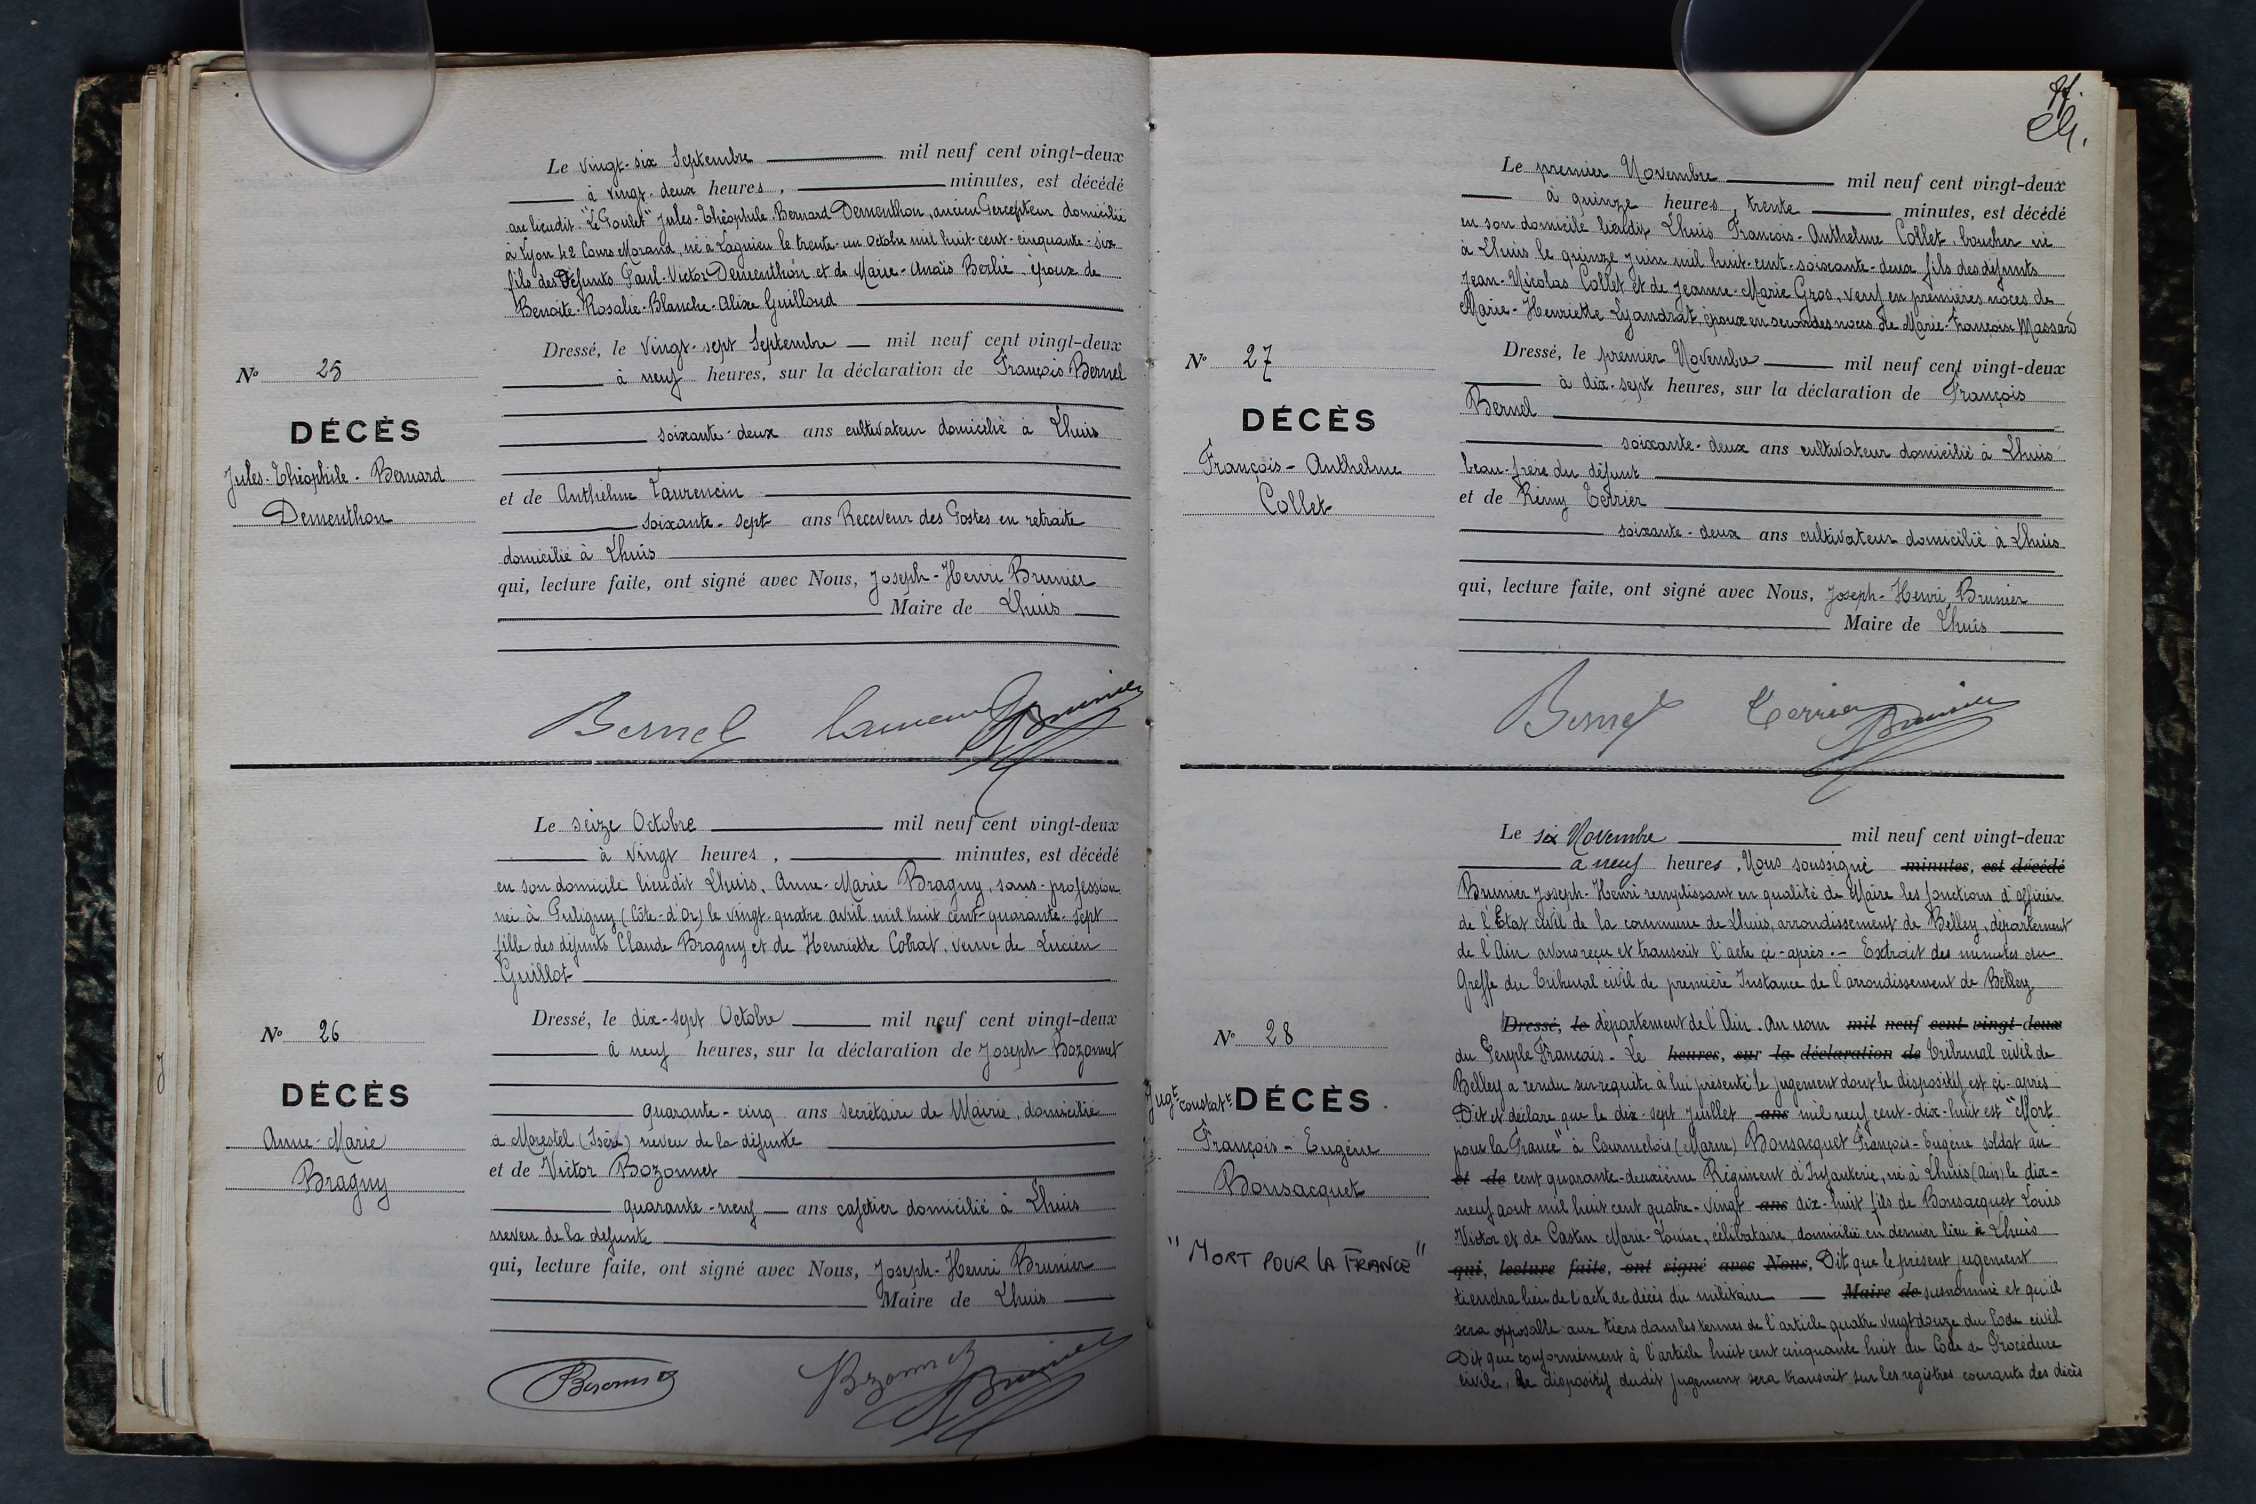 Le vingt-six Septembre mil neuf cent vingt-deux
à vingt-deux heures, minutes, est décédé
au lieudit "Le Poulet" Jules-Théophile-Bernard Dementhon, ancien Percepteur domicilié
à Lyon 42 Cours Morand, né à Lagnieu le trente-un Octobre mil huit-cent-cinquante-six
fils des défunts Paul-Victor Dementhon et de Marie-Anaïs Berlié, époux de
Benoite-Rosalie-Blanche-Alixe Guilloud
Dressé, le vingt-sept Septembre mil neuf cent vingt-deux
à neuf heures, sur la déclaration de François Bernel
No 25
DÉCÈS
Jules-Théophile-Bernard
Dementhon
soixante-deux ans cultivateur domicilié à Lhuis
et de Anthelme Laurencin
soixante-sept ans Receveur des Postes en retraite
domicilié à Lhuis
qui, lecture faite, ont signé avec Nous, Joseph-Henri Brunier
Maire de Lhuis
Bernel Laurencin Brunier
Le seize Octobre mil neuf cent vingt-deux
à vingt heures, minutes, est décédé
en son domicile lieudit Lhuis, Anne-Marie Bragny, sans-profession
née à Puligny (Côte-d'Or) le vingt-quatre avril mil huit cent-quarante-sept
fille des défunts Claude Bragny et de Henriette Cobrat, veuve de Lucien
Guillot
Dressé, le dix-sept Octobre mil neuf cent vingt-deux
à neuf heures, sur la déclaration de Joseph Bozonnet
No 26
DÉCÈS
Anne-Marie
Bragny
quarante-cinq ans secrétaire de Mairie, domicilié
à Morestel (Isère) neveu de la défunte
et de Victor Bozonnet
quarante-neuf ans cafetier domicilié à Lhuis
neveu de la défunte
qui, lecture faite, ont signé avec Nous, Joseph-Henri Brunier
Maire de Lhuis
Bozonnet Bozonnet Brunier
Le premier Novembre mil neuf cent vingt-deux
à quinze heures, trente minutes, est décédé
en son domicile lieudit Lhuis François-Anthelme Collet, boucher né
à Lhuis le quinze juin mil huit-cent-soixante-deux fils des défunts
Jean-Nicolas Collet et de Jeanne-Marie Gros, veuf en premières noces de
Marie-Henriette Lyandrat, époux en secondes noces de Marie-Françoise Massard
Dressé, le premier Novembre mil neuf cent vingt-deux
à dix-sept heures, sur la déclaration de François
Bernel
No 27
DÉCÈS
François-Anthelme
Collet
soixante-deux ans cultivateur domicilié à Lhuis
beau-frère du défunt
et de Rémy Terrier
soixante-deux ans cultivateur domicilié à Lhuis
qui, lecture faite, ont signé avec Nous, Joseph-Henri Brunier
Maire de Lhuis
Bernel Terrier Brunier
Le six Novembre mil neuf cent vingt-deux
à neuf heures, Nous soussigné minutes, est décédé
Brunier Joseph-Henri remplissant en qualité de Maire les fonctions d'officier
de l'État civil de la commune de Lhuis, arrondissement de Belley, département
de l'Ain avons reçu et transcrit l'acte çi-après.- Extrait des minutes du
Greffe du Tribunal civil de première Instance de l'arrondissement de Belley
Dressé, le département de l'Ain. Au nom mil neuf cent vingt-deux
du Peuple Français. Le heures, sur la déclaration de Tribunal civil de
Belley a rendu sur requête à lui présenté le jugement dont le dispositif est çi-après
Dit et déclare que le dix-sept Juillet ans mil neuf cent-dix-huit est "Mort
pour la France" à Courmelois (Marne) Bonsacquet François-Eugène soldat au
et de cent quarante-deuxième Régiment d'Infanterie, né à Lhuis (Ain) le dix-
neuf aout mil huit cent quatre-vingt ans dix-huit fils de Bonsacquet Louis
Victor et de Castin Marie-Louise, célibataire, domicilié en dernier lieu à Lhuis
qui, lecture faite, ont signé avec Nous, Dit que le présent jugement
tiendra lieu de l'acte de décès du militaire Maire de susnommé et qu'il
sera opposable aux tiers dans les termes de l'article quatre vingt douze du Code civil
Dit que conformément à l'article huit cent cinquante huit du Code de Procédure
civile, le dispositif dudit jugement sera transcrit sur les registres courants des décès
No 28
Jugt constatt DÉCÈS
François-Eugène
Bonsacquet
"MORT POUR LA FRANCE"